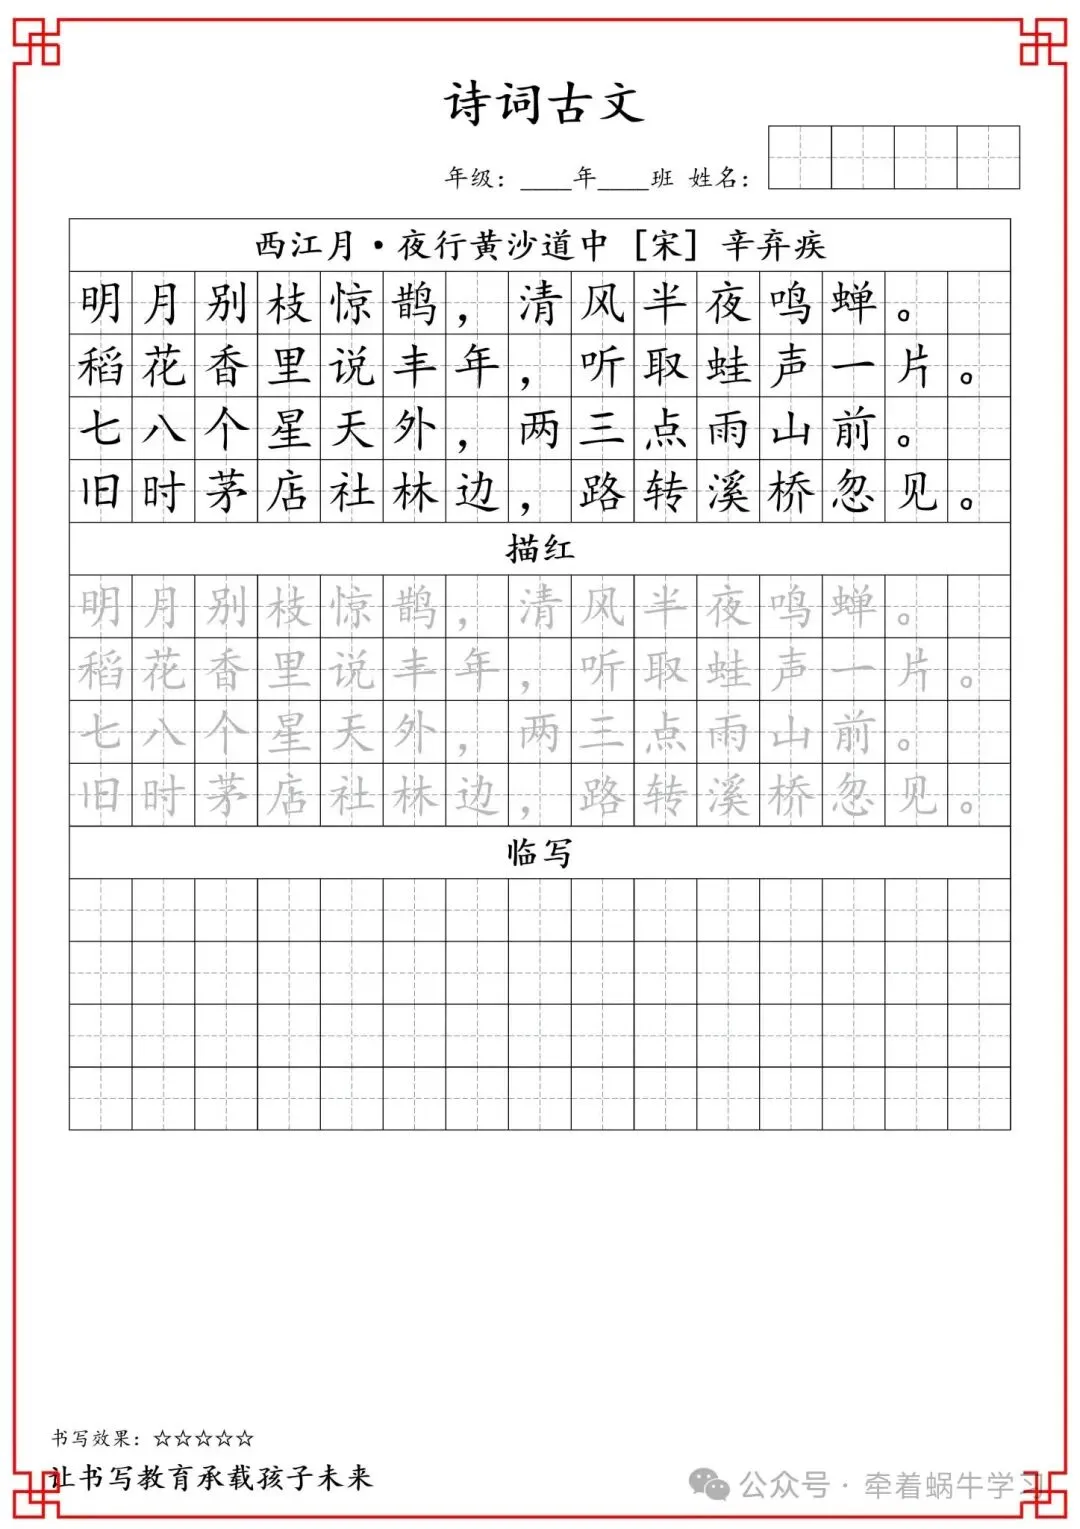 诗词古文
年级：____年____班 姓名：
西江月·夜行黄沙道中［宋］辛弃疾
明月别枝惊鹊，清风半夜鸣蝉。
稻花香里说丰年，听取蛙声一片。
七八个星天外，两三点雨山前。
旧时茅店社林边，路转溪桥忽见。
描红
明月别枝惊鹊，清风半夜鸣蝉。
稻花香里说丰年，听取蛙声一片。
七八个星天外，两三点雨山前。
旧时茅店社林边，路转溪桥忽见。
临写
书写效果：☆☆☆☆☆
让书写教育承载孩子未来
公众号·牵着蜗牛学习